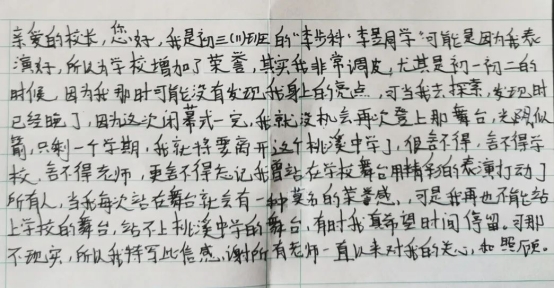 亲爱的校长,您好,我是初三(11)班的"李步科·李昱同学"可能是因为我表
演好,所以为学校增加了荣誉,其实我非常调皮,尤其是初一初二的
时候,因为我那时可能没有发现我身上的亮点,可当我去探索,发现时
已经晚了,因为这次闭幕式一完,我就没机会再次登上那舞台,光阴似
箭,只剩一个学期,我就将要离开这个桃溪中学了,很舍不得,舍不得学
校,舍不得老师,更舍不得忘记我曾站在学校舞台用精彩的表演打动了
所有人,当我每次站在舞台就会有一种莫名的荣誉感,可是我再也不能站
上学校的舞台,站不上桃溪中学的舞台,有时我真希望时间停留。可那
不现实,所以我特写此信感谢所有老师一直以来对我的关心,和照顾。